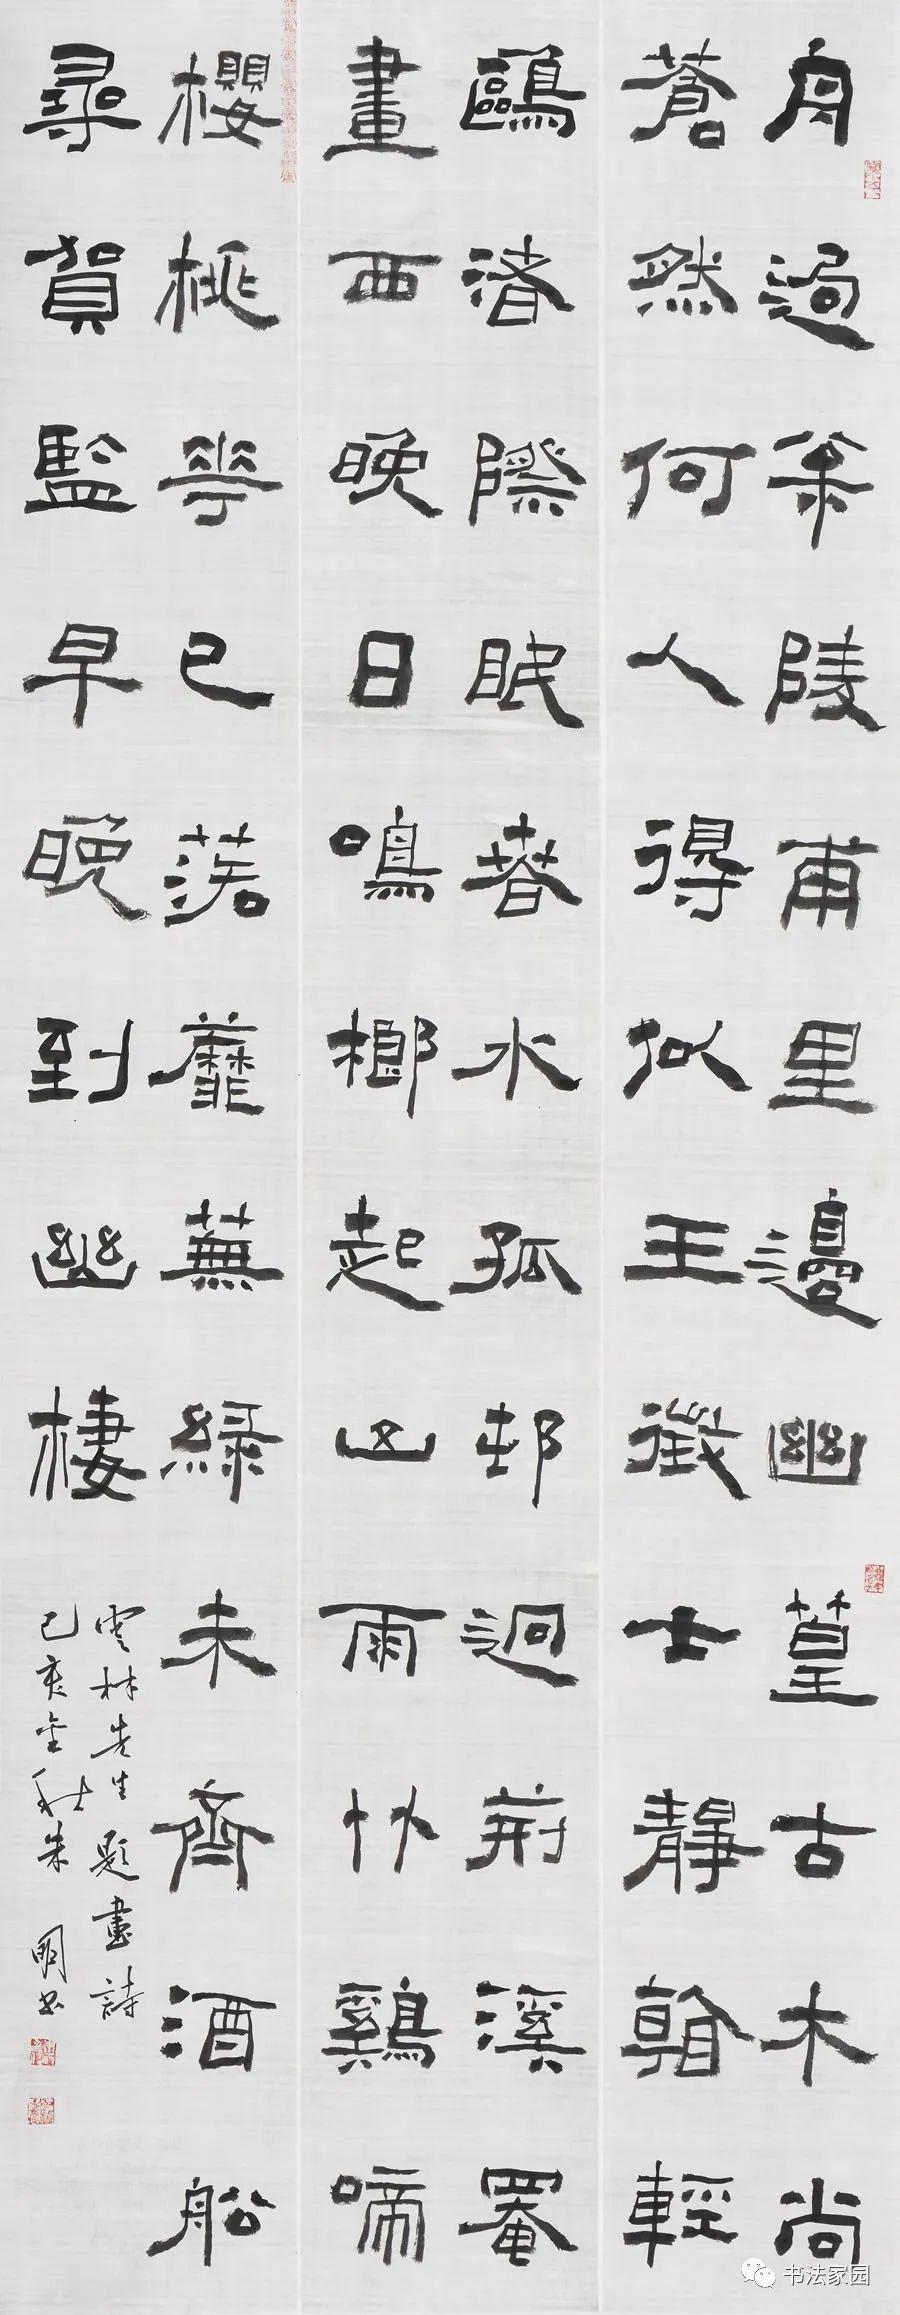 舟過枀陵甫里邊幽篁古木尚
蒼然何人得似王徵士靜看輕
鷗渚際眠春水孤邨迥荊溪罨
畫西晚日鳴榔起山雨竹鷄啼
櫻桃花已落蘼蕪綠未齊酒舩
尋賀監早晚到幽棲
雲林先生題畫詩
己亥金秋朱明書
书法家园